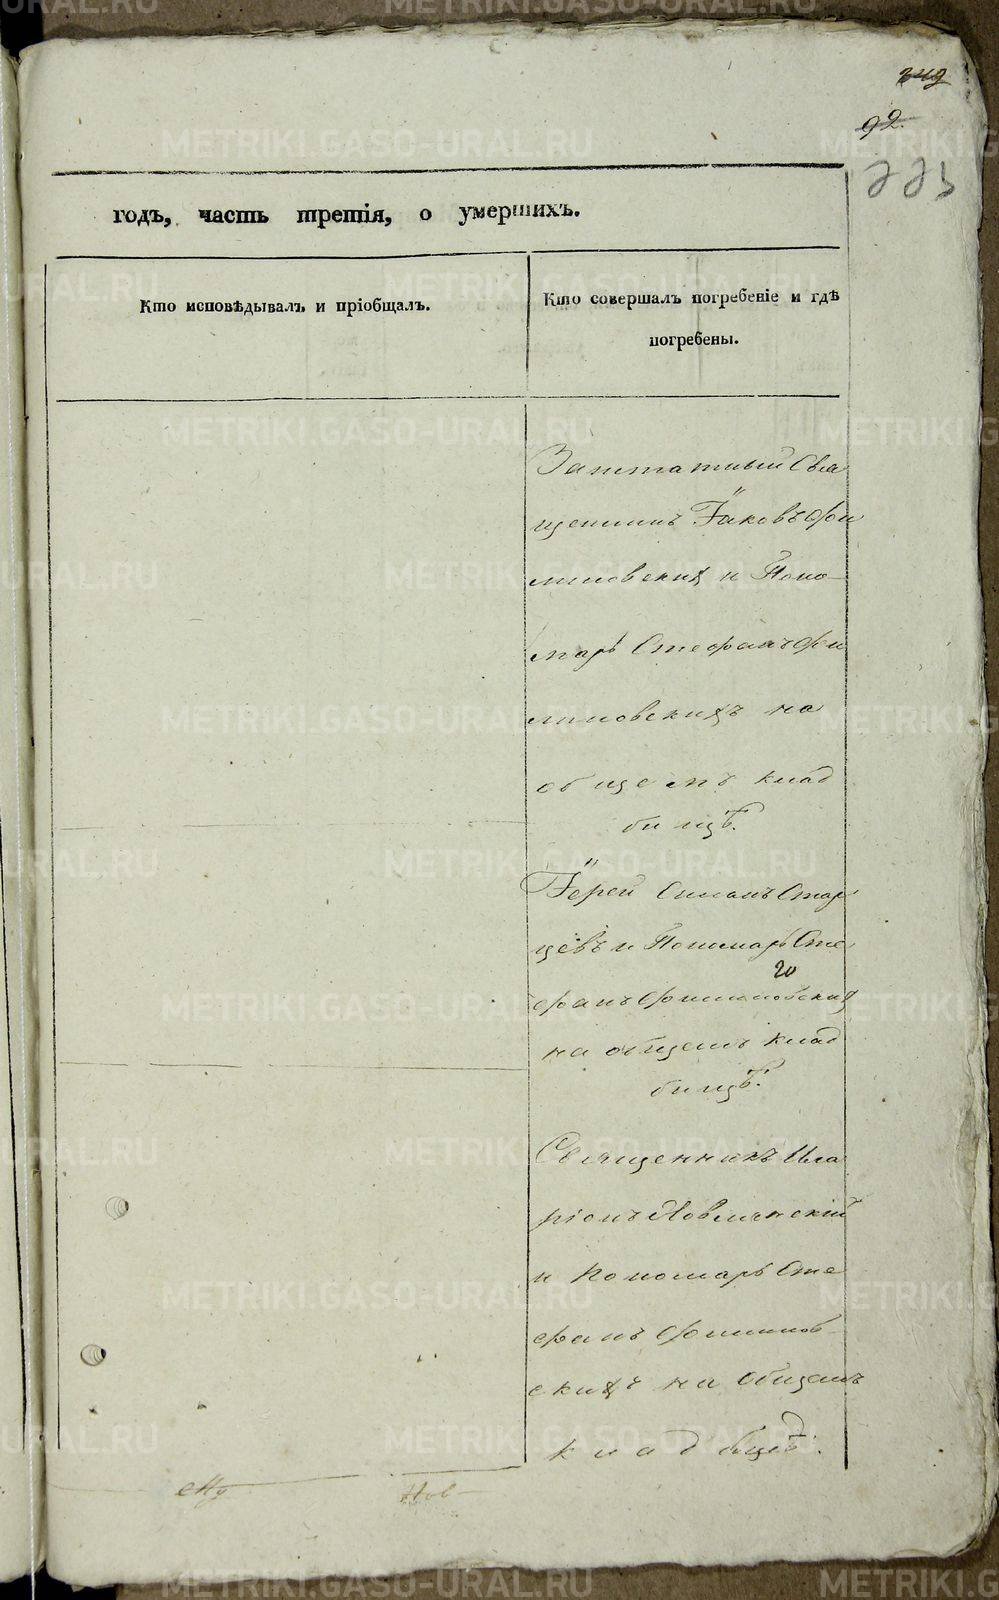 92.
годъ, часть третія, о умершихъ.
Кто исповѣдывалъ и пріобщалъ.
Кто совершалъ погребеніе и гдѣ
погребены.
Заштатный Свя
щенникъ Іаковъ Фи
липовскихъ и Поно
марь Стефанъ Фи
липовскихъ на
общемъ клад
бищѣ.
Іерей Симонъ Стар
цевъ и Пономарь Сте
фанъ Филиповских
на общемъ клад
бищѣ.
Священникъ Ила
ріонъ
и Пономарь Сте
фанъ Филипов
скихъ на общемъ
кладбищѣ.
METRIKI.GASO-URAL.RU